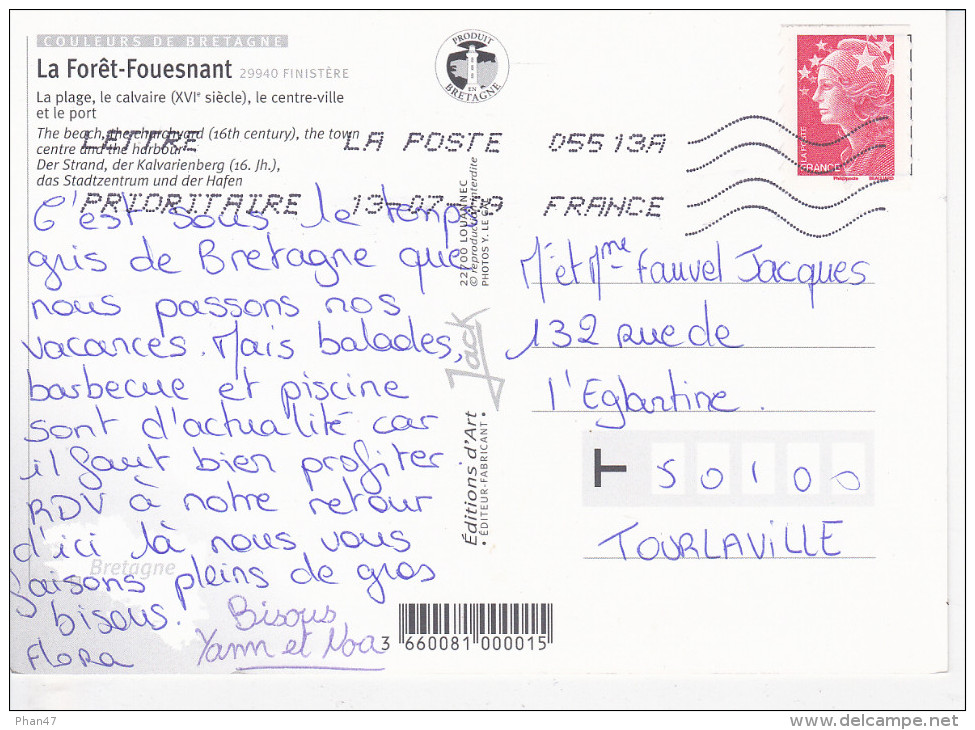 COULEURS DE BRETAGNE
La Forêt-Fouesnant 29940 FINISTÈRE
La plage, le calvaire (XVIe siècle), le centre-ville
et le port
The beach, the churchyard (16th century), the town
centre and the harbour
Der Strand, der Kalvarienberg (16. Jh.),
das Stadtzentrum und der Hafen
PRODUIT
EN
BRETAGNE
LA POSTE
FRANCE
LETTRE LA POSTE 05513A
PRIORITAIRE 13-07-09 FRANCE
C'est sous le temps
gris de Bretagne que
nous passons nos
vacances. Mais balades,
barbecue et piscine
sont d'actualité car
il faut bien profiter.
RDV à notre retour
d'ici là nous vous
faisons pleins de gros
bisous.
Flora
Bisous
Yann et Noa
Bretagne
22700 LOUANNEC
© reproduction interdite
PHOTOS Y. LE GAL
Jack
Éditions d'Art
• ÉDITEUR-FABRICANT •
Mr et Mme Fauvel Jacques
132 rue de
l'Eglantine.
50100
TOURLAVILLE
3 660081 000015
Phan47
delcampe.net